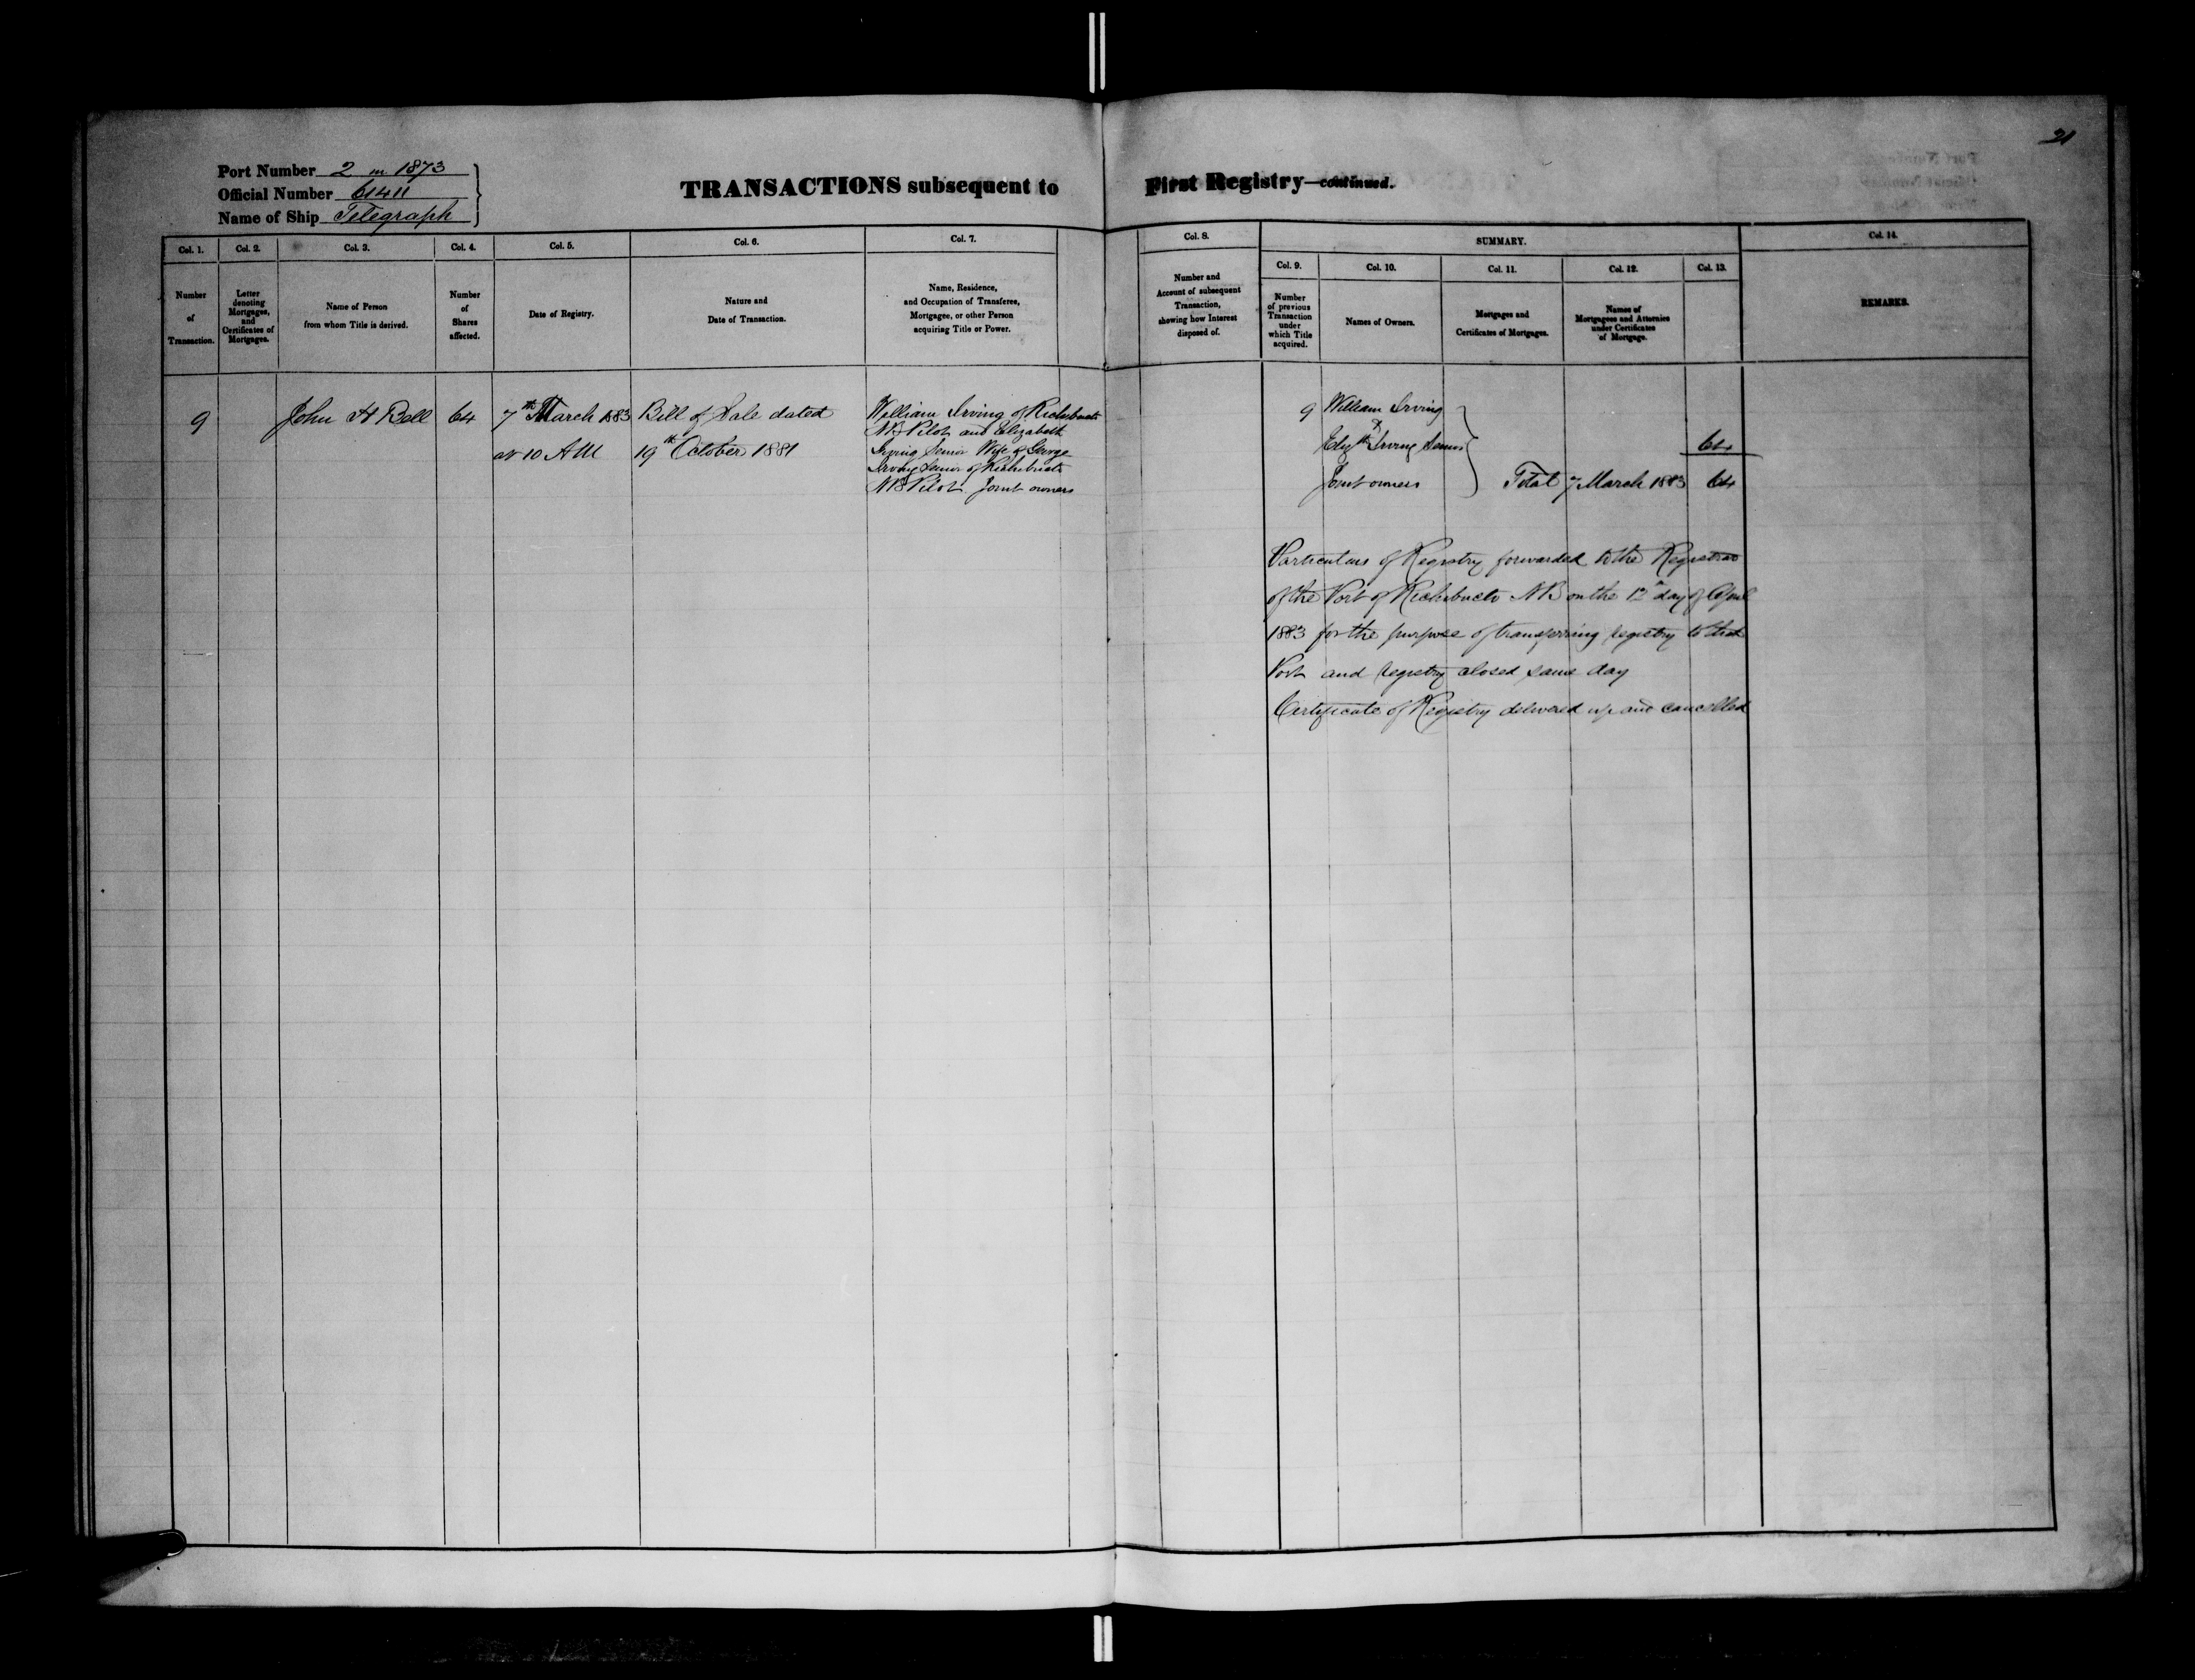 21
Port Number 2 in 1873
Official Number 61411
Name of Ship Telegraph
TRANSACTIONS subsequent to First Registry—continued.
Col. 1. Col. 2. Col. 3. Col. 4. Col. 5. Col. 6. Col. 7. Col. 8. SUMMARY. Col. 14.
Col. 9. Col. 10. Col. 11. Col. 12. Col. 13.
Number
of
Transaction.
Letter
denoting
Mortgages,
and
Certificates of
Mortgages.
Name of Person
from whom Title is derived.
Number
of
Shares
affected.
Date of Registry.
Nature and
Date of Transaction.
Name, Residence,
and Occupation of Transferee,
Mortgagee, or other Person
acquiring Title or Power.
Number and
Account of subsequent
Transaction,
showing how Interest
disposed of.
Number
of previous
Transaction
under
which Title
acquired.
Names of Owners.
Mortgages and
Certificates of Mortgages.
Names of
Mortgagees and Attornies
under Certificates
of Mortgage.
REMARKS.
9
John H Bell
64
7th March 1883
at 10 AM
Bill of Sale dated
19th October 1881
William Irving of Richibucto
NB Pilot and Elizabeth
Irving Senior Wife of George
Irving Senior of Richibucto
NB Pilot Joint owners
9 William Irving
&
Elizth Irving Senior
64
Joint owners Total 7 March 1883 64
Particulars of Registry forwarded to the Registrar
of the Port of Richibucto NB on the 12th day of April
1883 for the purpose of transferring registry to that
Port and registry closed same day
Certificate of Registry delivered up and cancelled